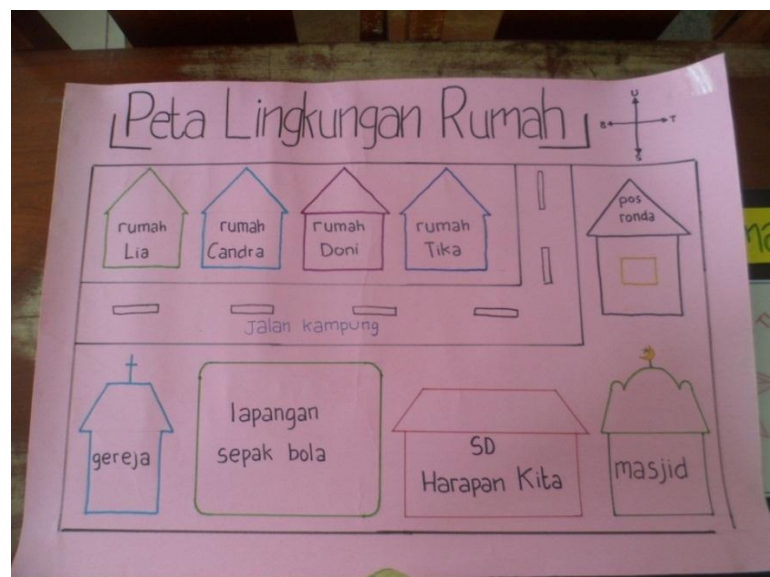 Peta Lingkungan Rumah
U
B T
S
rumah
Lia
rumah
Candra
rumah
Doni
rumah
Tika
pos
ronda
Jalan kampung
gereja
lapangan
sepak bola
SD
Harapan Kita
masjid